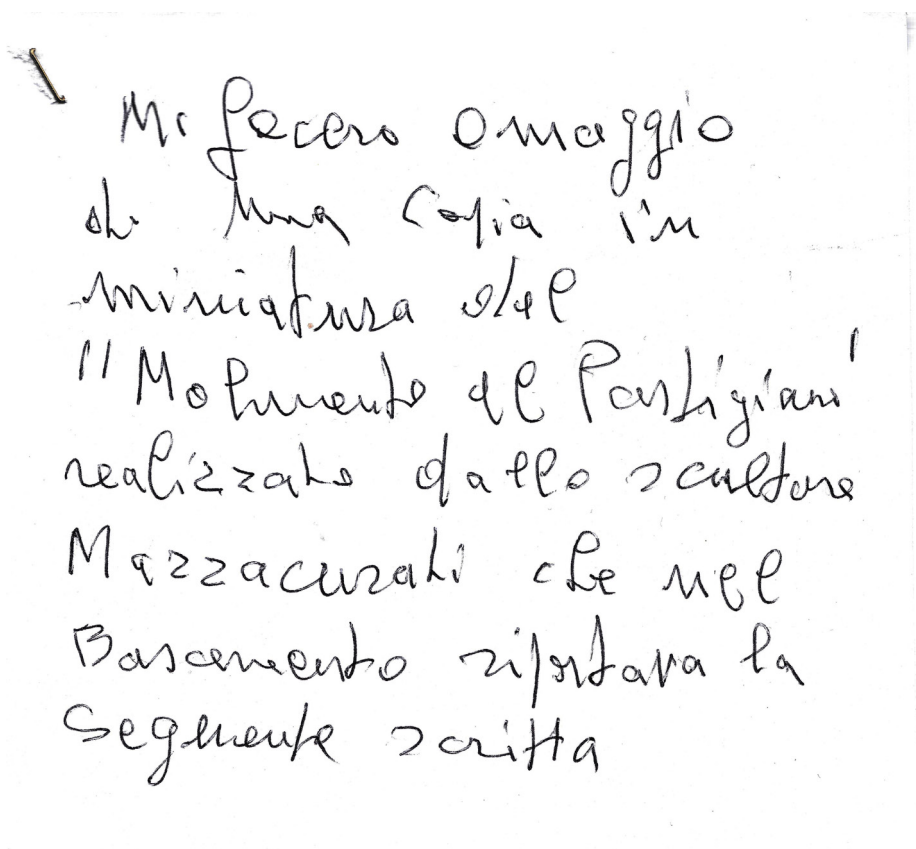 Mi fecero omaggio
di una copia in
miniatura del
"Monumento al Partigiano"
realizzato dallo scultore
Mazzacurati che nel
Basamento riportava la
Seguente scritta